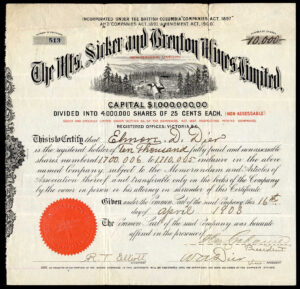 INCORPORATED UNDER THE BRITISH COLUMBIA "COMPANIES ACT, 1897"
AND COMPANIES ACT, 1897, AMENDMENT ACT,
NUMBER
513
SHARES
10,000
The Mts. Sicker and Brenton Mines Limited.
CAPITAL $1,000,000.00
DIVIDED INTO 4,000,000 SHARES OF 25 CENTS EACH. (NON-ASSESSABLE)
REGISTERED OFFICES: VICTORIA, B.C.
This is to Certify that Elinor D. Dier
is the registered holder of Ten Thousand fully paid and nonassessable
shares numbered 1700,006 to 1710,005 inclusive in the above
named Company, subject to the Memorandum and Articles of
Association thereof and transferable only on the books of the Company
by the owner in person or his attorney on surrender of this Certificate
Given under the Common Seal of the said Company this 16th
day of April 1903
The Common Seal of the said Company was hereunto
affixed in the presence of
President
R T Elliott
W A Dier